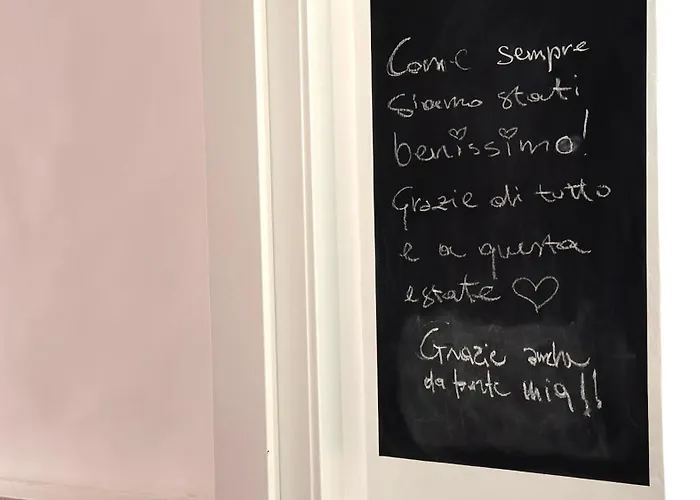 Come sempre
siamo stati
benissimo!
Grazie di tutto
e a questa
estate ♡
Grazie anche
da parte mia!!